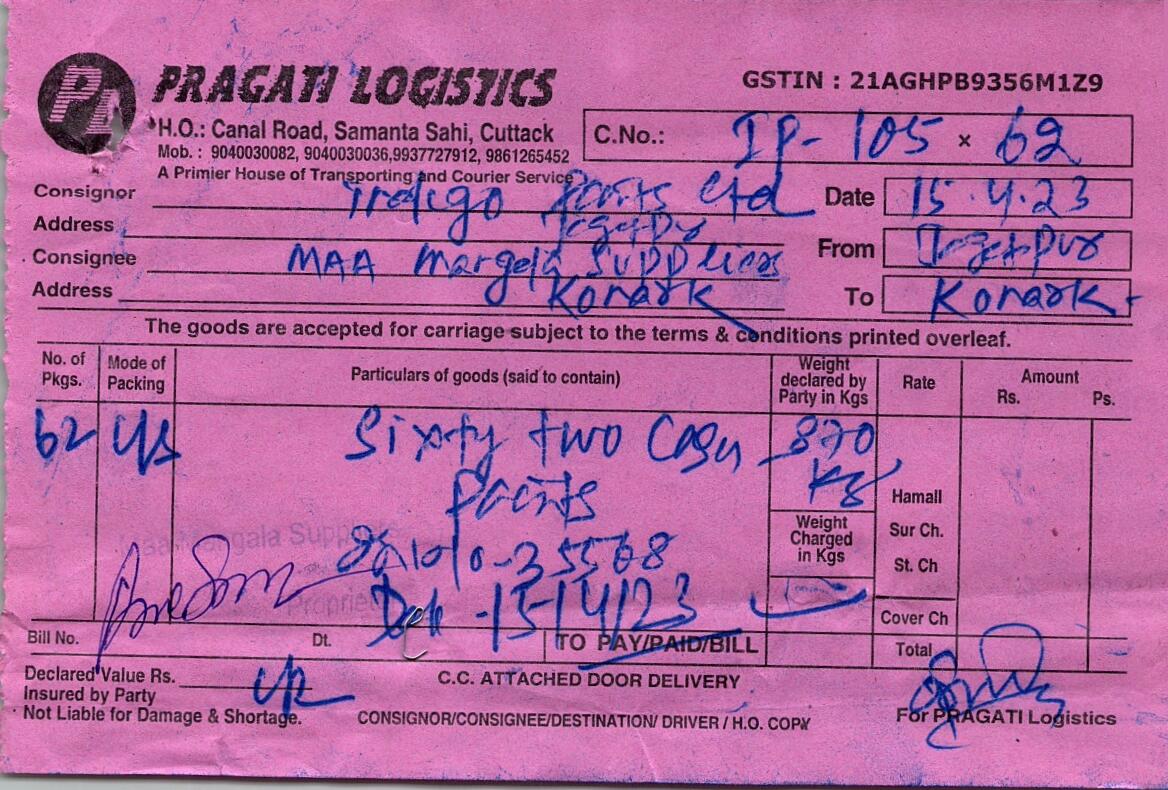 PL PRAGATI LOGISTICS
GSTIN : 21AGHPB9356M1Z9
H.O.: Canal Road, Samanta Sahi, Cuttack
Mob. : 9040030082, 9040030036,9937727912, 9861265452
A Primier House of Transporting and Courier Service
C.No.: IP- 105 x 62
Consignor Indigo Paints Ltd
Date 15.4.23
Address Jagatpur
From Jagatpur
Consignee MAA Mangala Suppliers
Address Konark
To Konark
The goods are accepted for carriage subject to the terms & conditions printed overleaf.
No. of Pkgs. Mode of Packing Particulars of goods (said to contain) Weight declared by Party in Kgs Rate Amount Rs. Ps.
62 C/s Sixty two Cases 870
Paints Kg
Hamall
Weight Charged in Kgs
Sur Ch.
Maa Mangala Suppliers
35568
St. Ch
Propriet
Date -15/4/23
Cover Ch
Bill No. Dt. TO PAY/PAID/BILL Total
Declared Value Rs.
C.C. ATTACHED DOOR DELIVERY
Insured by Party
Not Liable for Damage & Shortage.
CONSIGNOR/CONSIGNEE/DESTINATION/ DRIVER / H.O. COPY
For PRAGATI Logistics